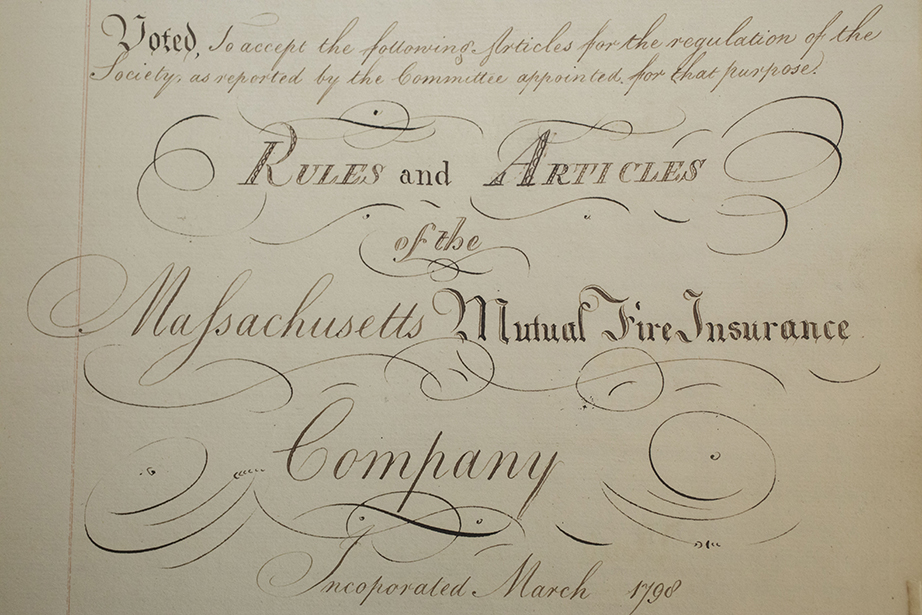 Voted, To accept the following Articles for the regulation of the
Society, as reported by the Committee appointed for that purpose.
Rules and Articles
of the
Maſsachusetts Mutual Fire Insurance
Company
Incoporated March 1798